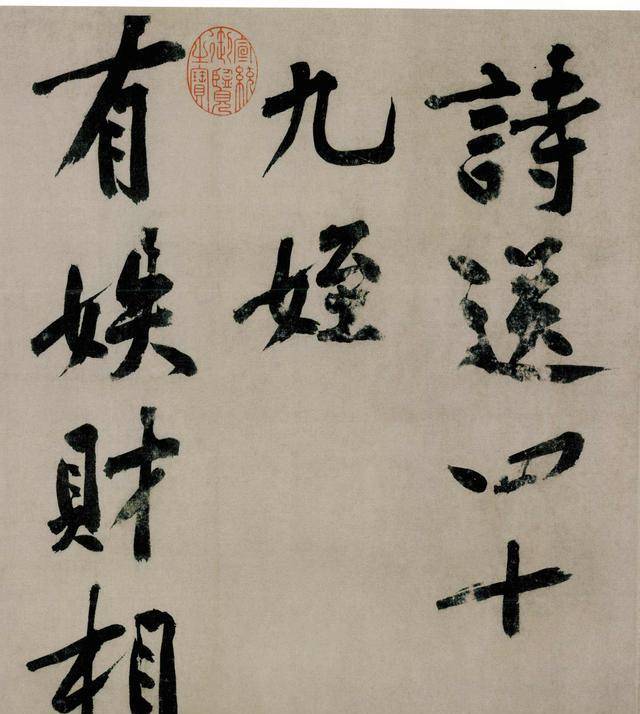 詩送四十
九姪
宣統
御覽
之寶
有妷財相